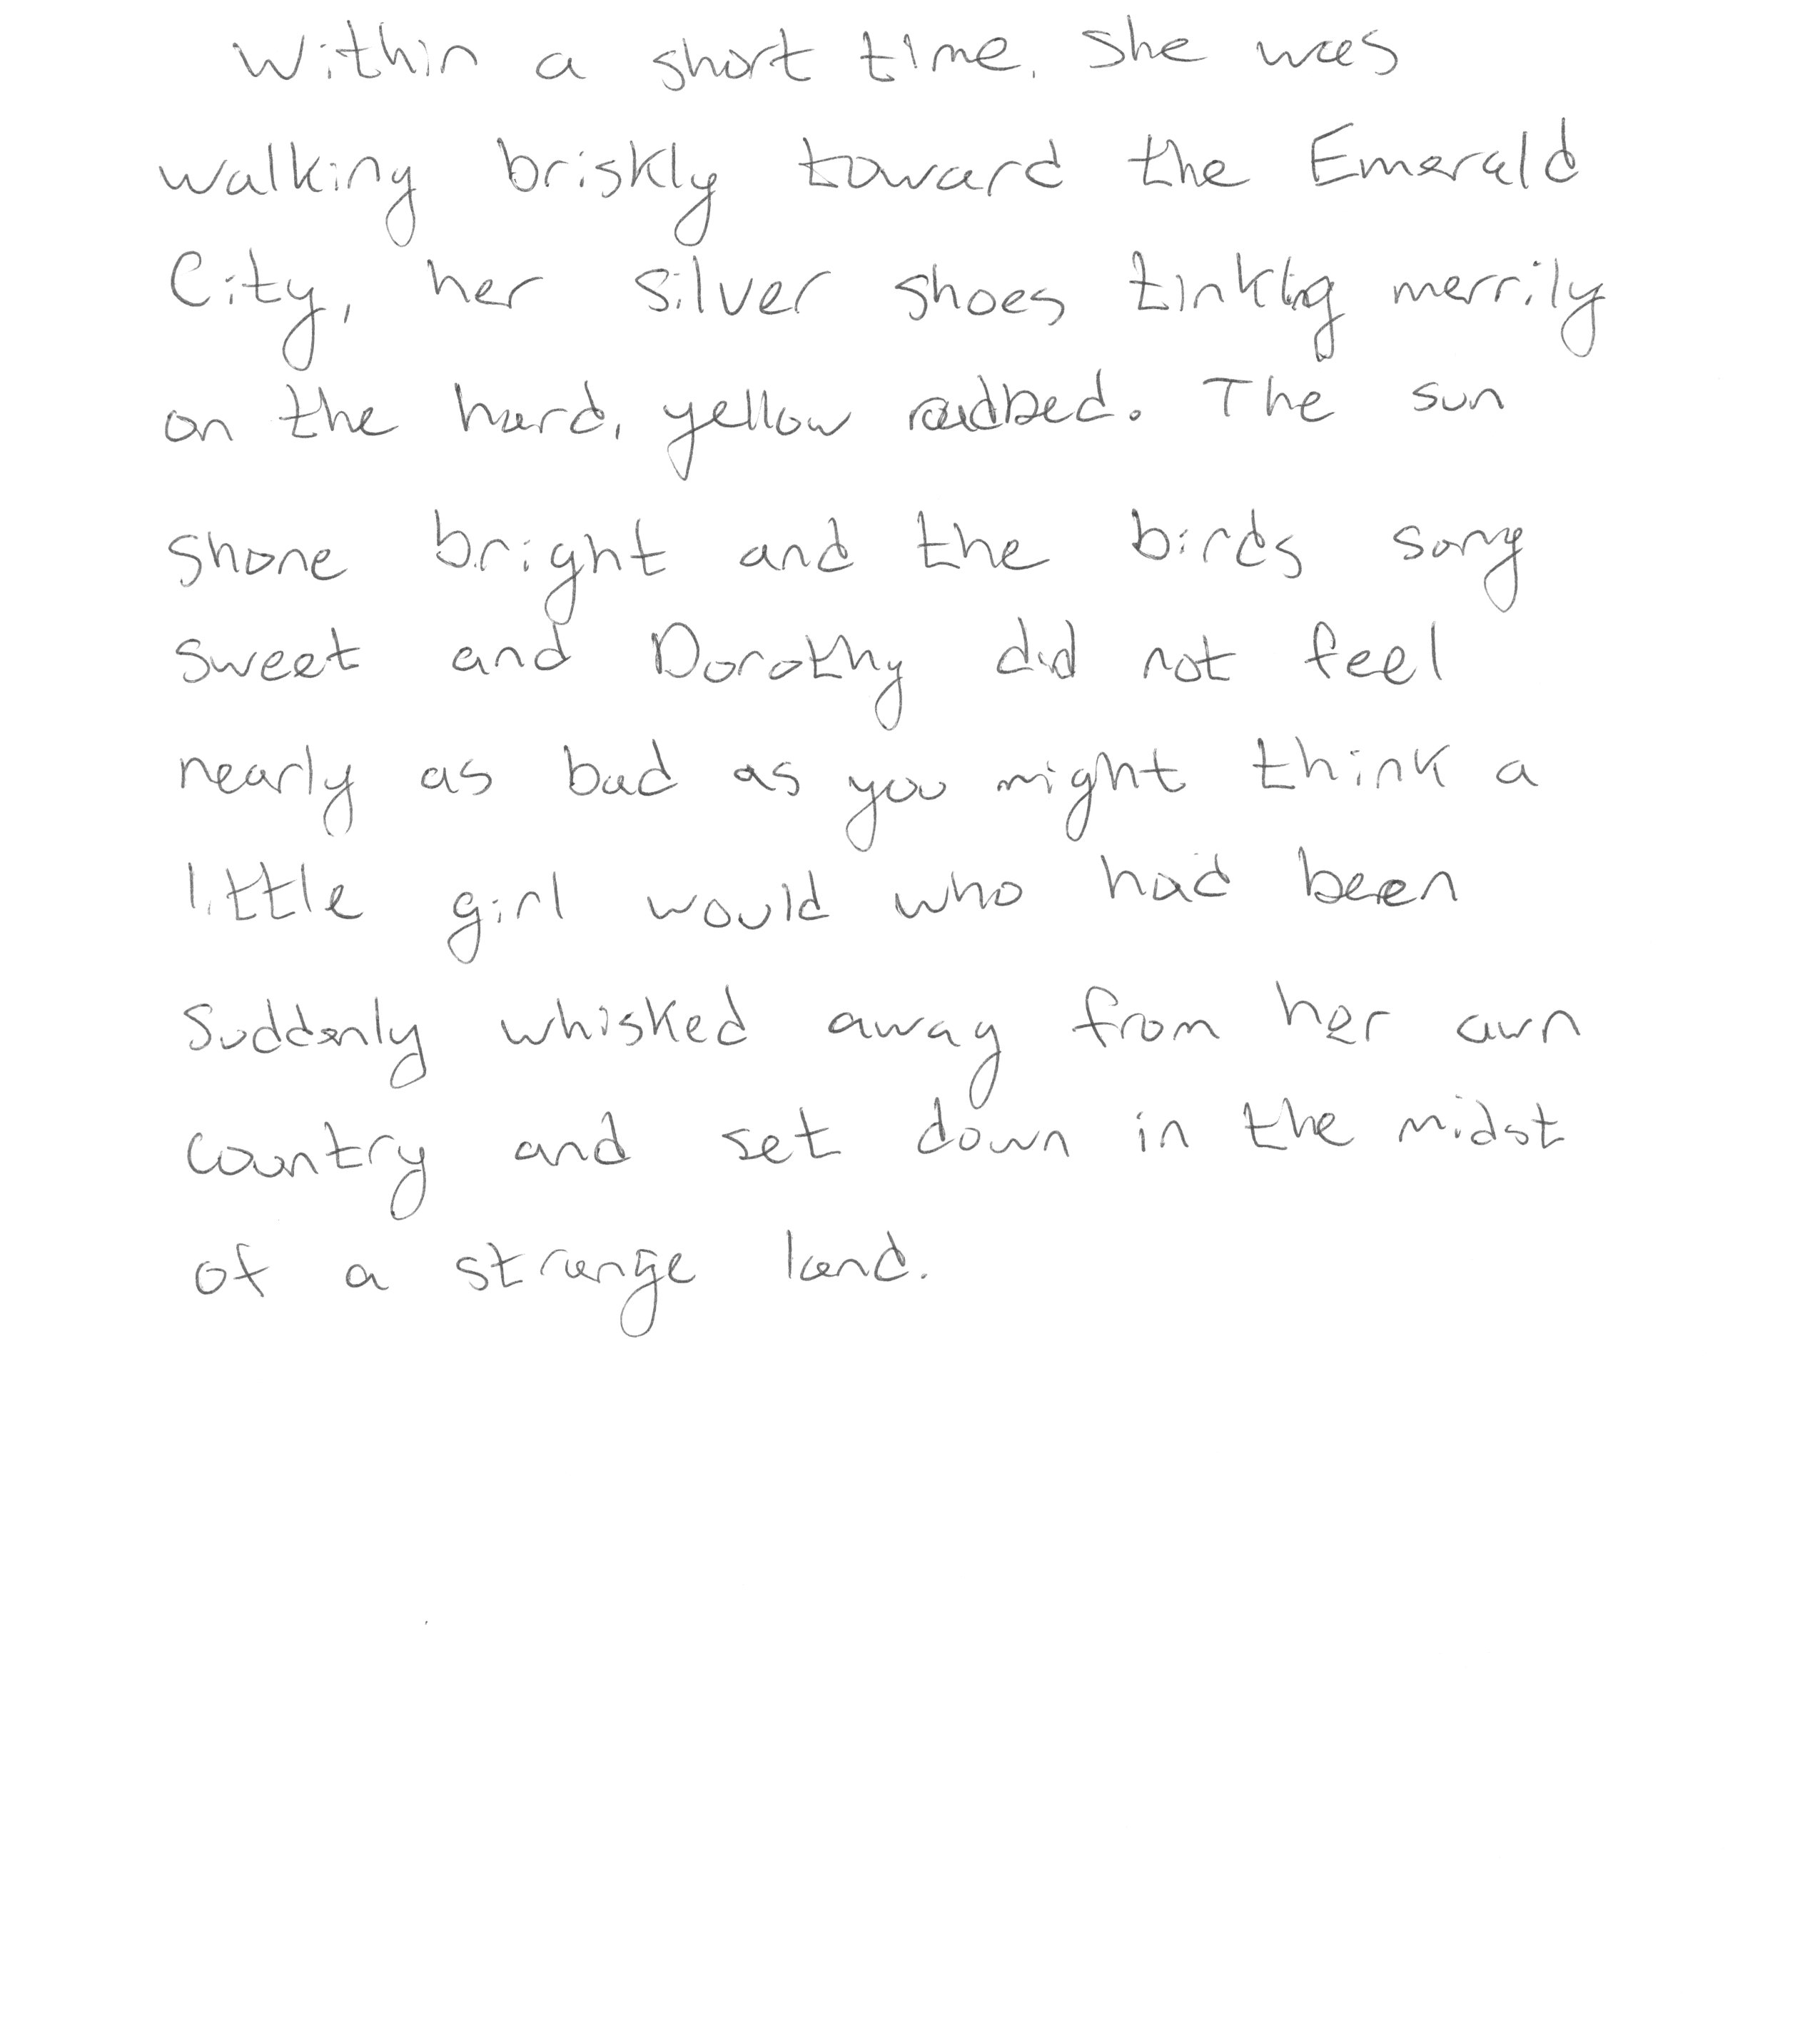 Within a short time, she was
walking briskly toward the Emerald
City, her silver shoes tinkling merrily
on the hard, yellow roadbed. The sun
shone bright and the birds song
sweet and Dorothy did not feel
nearly as bad as you might think a
little girl would who had been
suddenly whisked away from her own
country and set down in the midst
of a strange land.